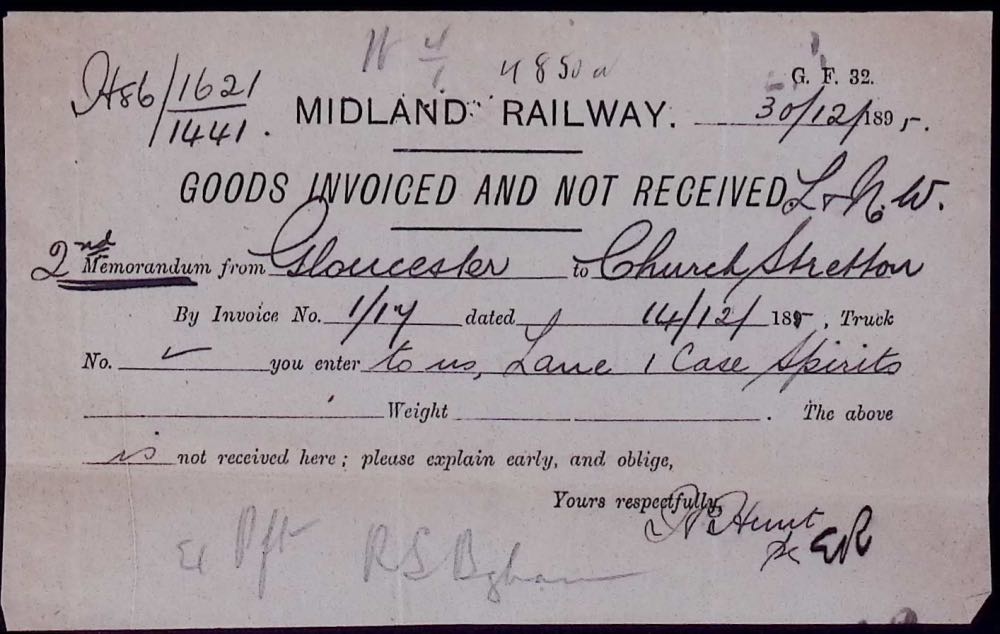 4850
G. F. 32.
H86/1621/1441.
MIDLAND RAILWAY. 30/12/1895.
GOODS INVOICED AND NOT RECEIVED L & N. W.
2nd Memorandum from Gloucester to Church Stretton
By Invoice No. 1/17 dated 14/12/ 1895, Truck
No. ✓ you enter to us, Lane 1 Case Spirits
Weight . The above
is not received here; please explain early, and oblige,
Yours respectfully,
Hunt
ER